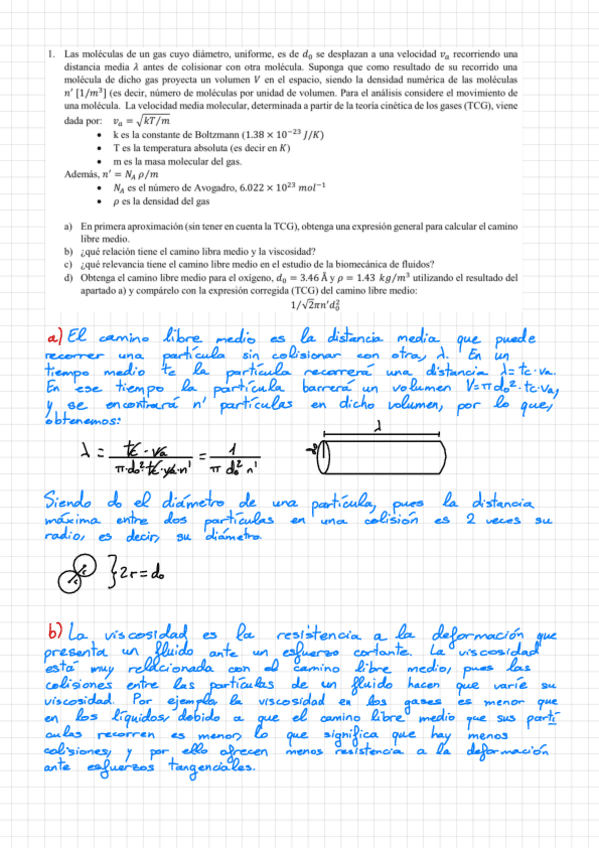 1. Las moléculas de un gas cuyo diámetro, uniforme, es de d₀ se desplazan a una velocidad vₐ recorriendo una
distancia media λ antes de colisionar con otra molécula. Suponga que como resultado de su recorrido una
molécula de dicho gas proyecta un volumen V en el espacio, siendo la densidad numérica de las moléculas
n′ [1/m³] (es decir, número de moléculas por unidad de volumen. Para el análisis considere el movimiento de
una molécula. La velocidad media molecular, determinada a partir de la teoría cinética de los gases (TCG), viene
dada por: vₐ = √kT/m
• k es la constante de Boltzmann (1.38 × 10⁻²³ J/K)
• T es la temperatura absoluta (es decir en K)
• m es la masa molecular del gas.
Además, n′ = N_A ρ/m
• N_A es el número de Avogadro, 6.022 × 10²³ mol⁻¹
• ρ es la densidad del gas
a) En primera aproximación (sin tener en cuenta la TCG), obtenga una expresión general para calcular el camino
libre medio.
b) ¿qué relación tiene el camino libra medio y la viscosidad?
c) ¿qué relevancia tiene el camino libre medio en el estudio de la biomecánica de fluidos?
d) Obtenga el camino libre medio para el oxígeno, d₀ = 3.46 Å y ρ = 1.43 kg/m³ utilizando el resultado del
apartado a) y compárelo con la expresión corregida (TCG) del camino libre medio:
1/√2πn′d₀²
a) El camino libre medio es la distancia media que puede
recorrer una partícula sin colisionar con otra, λ. En un
tiempo medio tc la partícula recorrerá una distancia λ = tc·va.
En ese tiempo la partícula barrerá un volumen V=πdo²·tc·va,
y se encontrará n' partículas en dicho volumen, por lo que,
obtenemos:
λ
λ = tc·va / π·do²·tc·va·n' = 1 / π do² n'
Siendo do el diámetro de una partícula, pues la distancia
máxima entre dos partículas en una colisión es 2 veces su
radio, es decir, su diámetro.
}2r=do
b) La viscosidad es la resistencia a la deformación que
presenta un fluido ante un esfuerzo cortante. La viscosidad
está muy relacionada con el camino libre medio, pues las
colisiones entre las partículas de un fluido hacen que varíe su
viscosidad. Por ejemplo, la viscosidad en los gases es menor que
en los líquidos, debido a que el camino libre medio que sus partí
culas recorren es menor, lo que significa que hay menos
colisiones, y por ello ofrecen menos resistencia a la deformación
ante esfuerzos tangenciales.